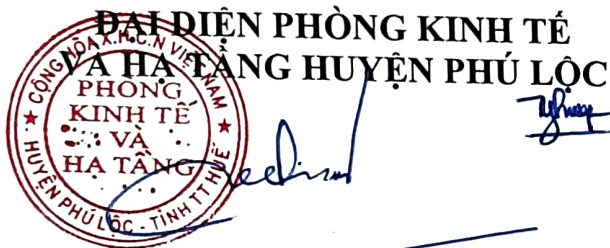 ĐẠI DIỆN PHÒNG KINH TẾ
VÀ HẠ TẦNG HUYỆN PHÚ LỘC
CỘNG HÒA X.H.C.N VIỆT NAM
PHÒNG
KINH TẾ
VÀ
HẠ TẦNG
HUYỆN PHÚ LỘC - TỈNH TT HUẾ